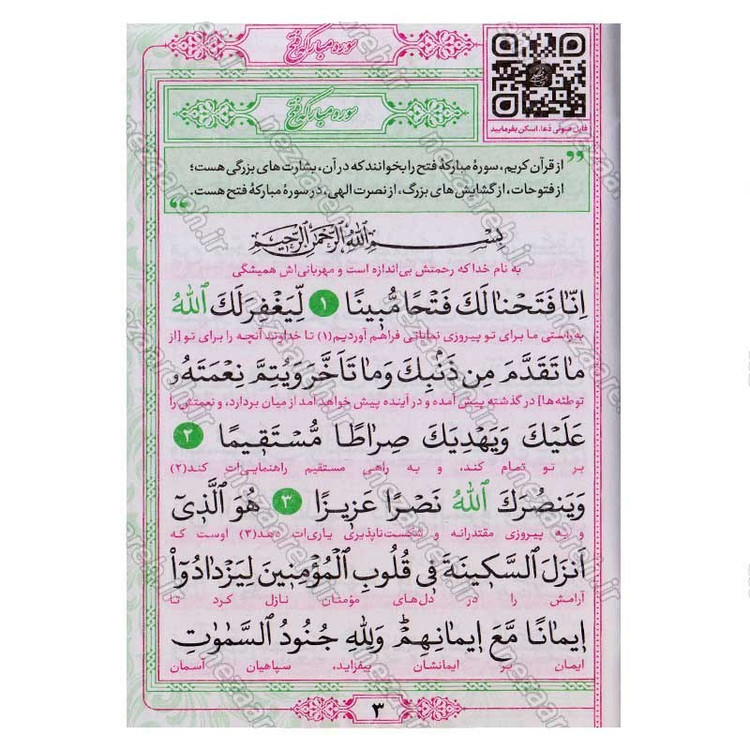 سوره مبارکه فتح
فایل صوتی دعا، اسکن بفرمایید
سوره مبارکه فتح
از قرآن کریم، سورهٔ مبارکهٔ فتح را بخوانند که در آن، بشارت های بزرگی هست؛
از فتوحات، از گشایش های بزرگ، از نصرت الهی، در سورهٔ مبارکهٔ فتح هست.
بِسْمِ اللهِ الرَّحْمنِ الرَّحیمِ
به نام خدا که رحمتش بی‌اندازه است و مهربانی‌اش همیشگی
اِنّا فَتَحْنا لَكَ فَتْحًا مُّبِینًا ۱ لِّیَغْفِرَ لَكَ اللهُ
به راستی ما برای تو پیروزی نمایانی فراهم آوردیم(۱) تا خداوند آنچه را برای تو [از
ما تَقَدَّمَ مِن ذَنْبِكَ وَما تَاَخَّرَ وَیُتِمَّ نِعْمَتَهُ و
توطئه‌ها] در گذشته پیش آمده و در آینده پیش خواهد آمد از میان بردارد، و نعمتش را
عَلَیْكَ وَیَهْدِیَكَ صِراطًا مُّسْتَقِیمًا ۲
بر تو تمام کند، و به راهی مستقیم راهنمایی‌ات کند(۲)
وَیَنصُرَكَ اللهُ نَصْرًا عَزِیزًا ۳ هُوَ الَّذِیٓ
و به پیروزی مقتدرانه و شکست‌ناپذیری یاری‌ات دهد(۳) اوست که
اَنزَلَ السَّكِینَةَ فِی قُلُوبِ الْمُؤْمِنِینَ لِیَزْدادُوٓا
آرامش را در دل‌های مؤمنان نازل کرد تا
اِیمانًا مَّعَ اِیمانِهِمْ ۗ وَلِلّهِ جُنُودُ السَّمٰوٰتِ
ایمان بر ایمانشان بیفزاید، سپاهیان آسمان
۳
nezaareh.ir